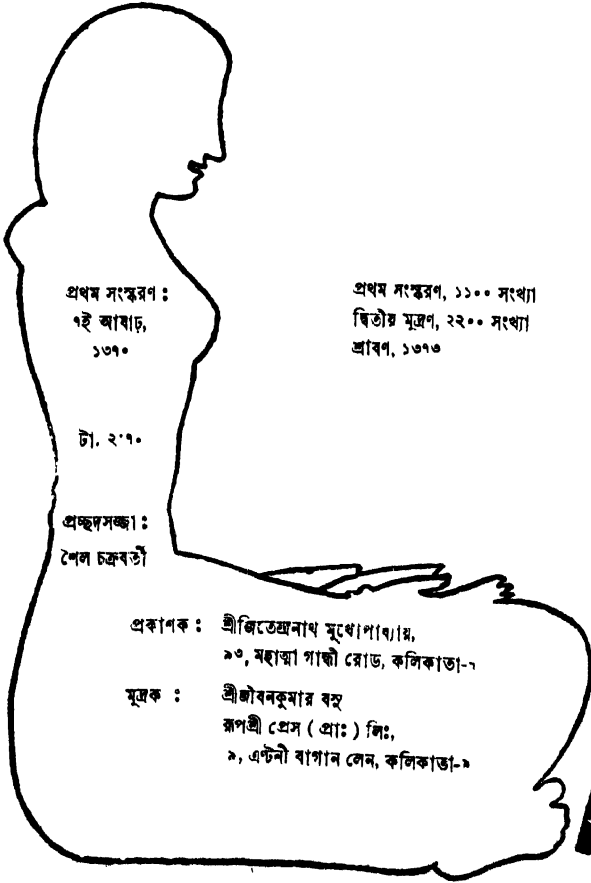 প্রথম সংস্করণ :
৭ই আষাঢ়,
১৩৭০
প্রথম সংস্করণ, ১১০০ সংখ্যা
দ্বিতীয় মুদ্রণ, ২২০০ সংখ্যা
শ্রাবণ, ১৩৭৩
টা. ২·৭০
প্রচ্ছদসজ্জা :
শৈল চক্রবর্তী
প্রকাশক : শ্রীজিতেন্দ্রনাথ মুখোপাধ্যায়,
৯৩, মহাত্মা গান্ধী রোড, কলিকাতা-৭
মুদ্রক : শ্রীজীবনকুমার বসু
রূপশ্রী প্রেস ( প্রাঃ ) লিঃ,
৯, এণ্টনী বাগান লেন, কলিকাতা-৯